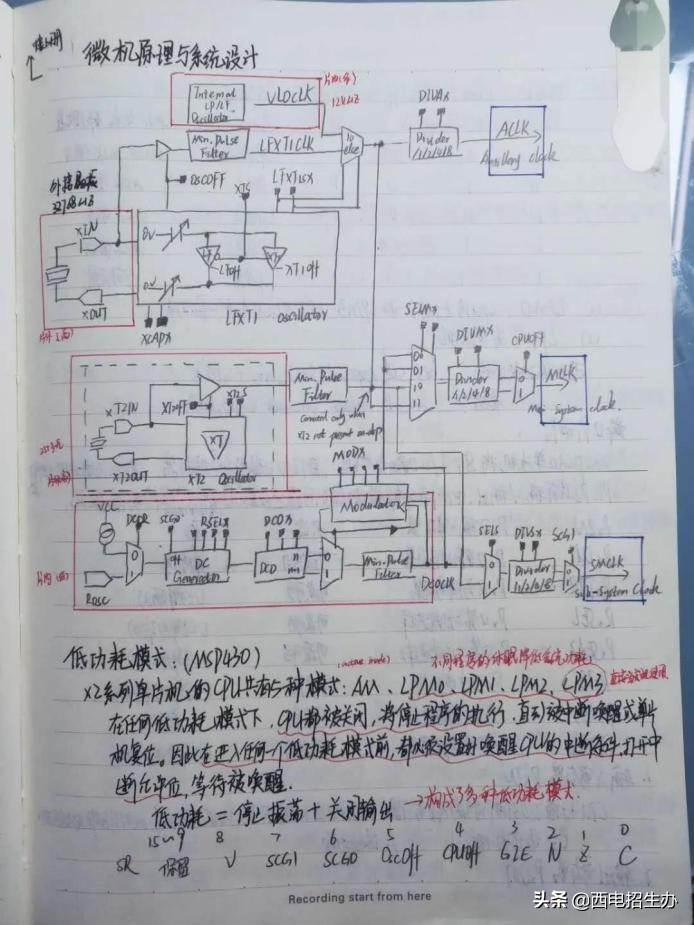 微机原理与系统设计
Internal LP/LF Oscillator
VLOCLK
12kHz
Min. Pulse Filter
LFXT1CLK
DIVAx
Divider /1/2/4/8
ACLK
Auxillary clock
OSCOFF
XTS
LFXT1Sx
else
外接晶振
32768Hz
XIN
XOUT
0V
0V
LF
XT
LFOff
XT1Off
LFXT1 Oscillator
XCAPx
SELMx
00
01
10
11
DIVMx
Divider /1/2/4/8
CPUOFF
0
1
MCLK
Main System Clock
Min. Pulse Filter
Connected only when
XT2 not present on-chip
XT2IN
XT2OFF
XT2S
XT
XT2OUT
XT2 Oscillator
MODx
Modulator
VCC
DCOR
SCG0
RSELx
DCOx
0
1
off
DC Generator
DCO
n
n+1
0
1
Min. Pulse Filter
DCOCLK
ROSC
SELS
0
1
DIVSx
Divider /1/2/4/8
SCG1
0
1
SMCLK
Sub-System Clock
低功耗模式:(MSP430)
(active mode)
不同程度的休眠降低系统功耗
X2系列单片机的CPU共有5种模式:AM、LPM0、LPM1、LPM2、LPM3
在任何低功耗模式下,CPU都被关闭,将停止程序的执行,直到被中断唤醒或单片
机复位。因此在进入任何一个低功耗模式前,都必须设置好唤醒CPU的中断条件,打开中
断允许位,等待被唤醒.
低功耗=停止振荡+关闭输出 →构成了多种低功耗模式.
15~9 8 7 6 5 4 3 2 1 0
SR 保留 V SCG1 SCG0 OscOff CPUOff GIE N Z C
Recording start from here
头条 @西电招生办